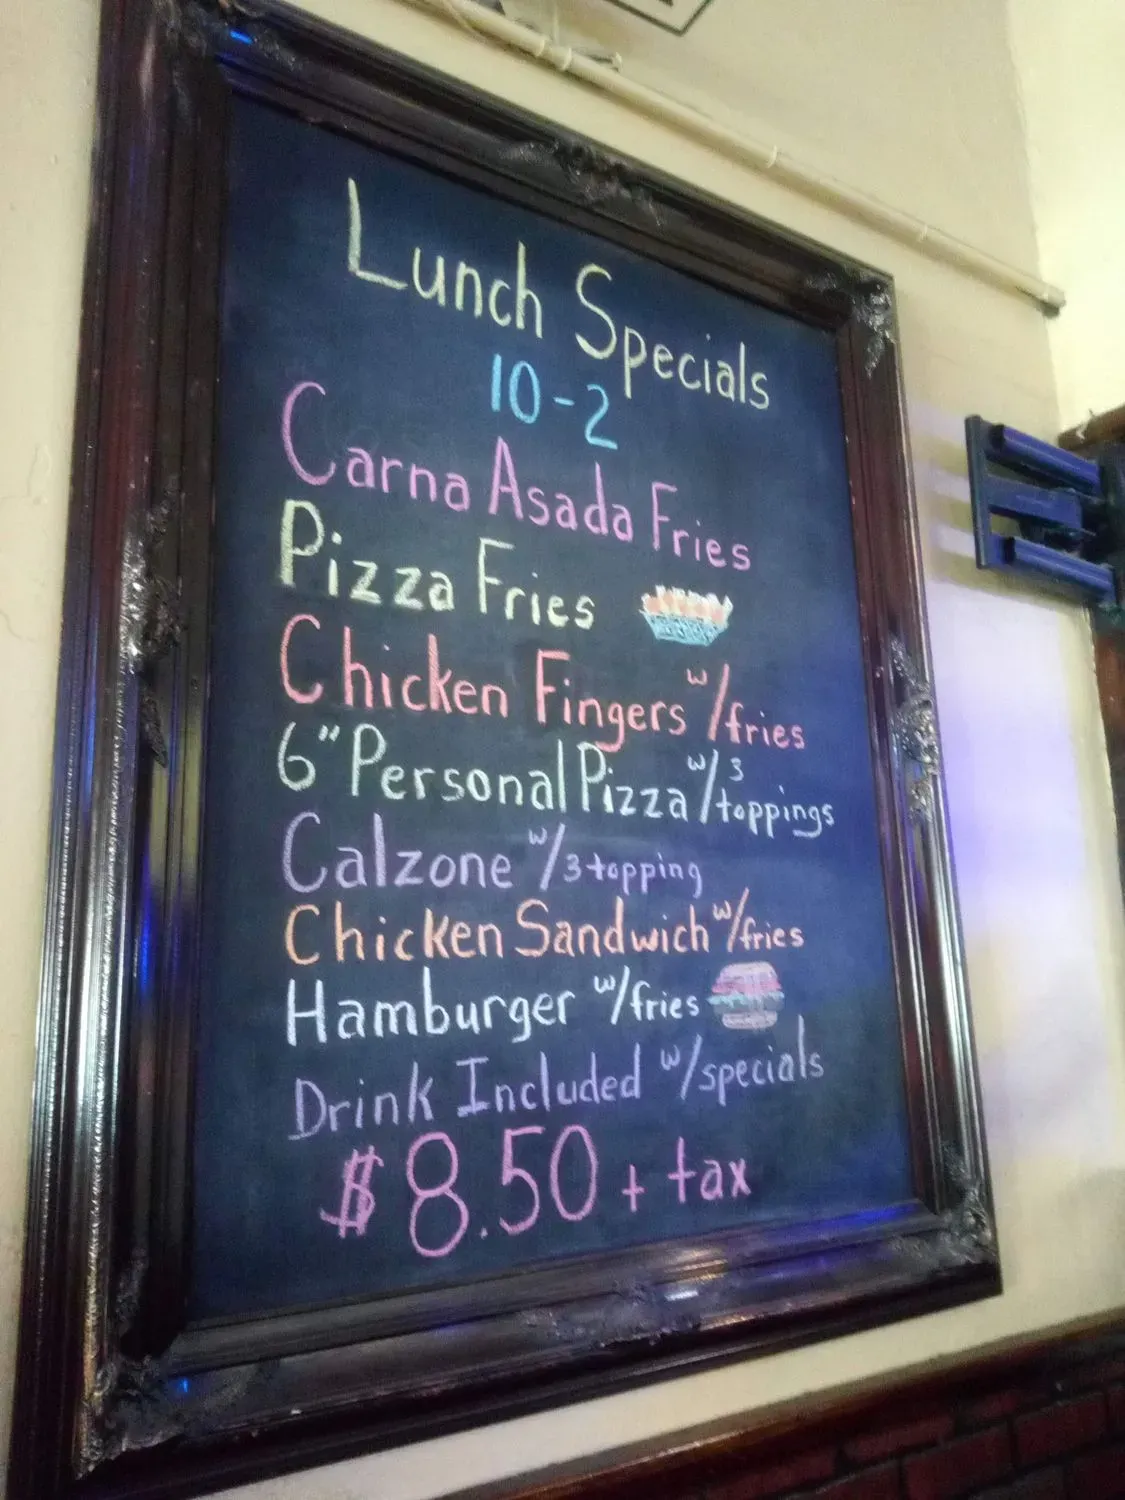 Lunch Specials
10-2
Carna Asada Fries
Pizza Fries
Chicken Fingers w/fries
6" Personal Pizza w/3 toppings
Calzone w/3 topping
Chicken Sandwich w/fries
Hamburger w/fries
Drink Included w/specials
$8.50 + tax